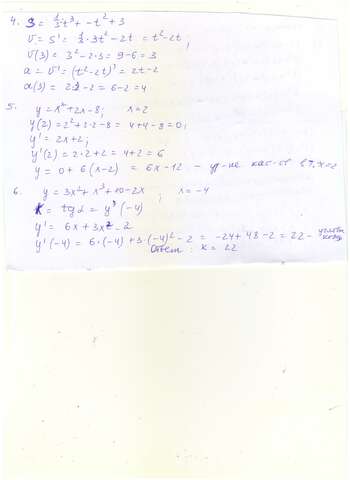 4. S = 1/3 t³ + -t² + 3
V = S' = 1/3 · 3t² - 2t = t² - 2t;
V(3) = 3² - 2·3 = 9 - 6 = 3
a = V' = (t² - 2t)' = 2t - 2
a(3) = 2·3 - 2 = 6 - 2 = 4
5. y = x² + 2x - 8; x = 2
y(2) = 2² + 2·2 - 8 = 4 + 4 - 8 = 0;
y' = 2x + 2;
y'(2) = 2·2 + 2 = 4 + 2 = 6
y = 0 + 6(x - 2) = 6x - 12 - ур-ие кас-ой в т. x = 2
6. y = 3x² + x³ + 10 - 2x; x = -4
k = tg α = y'(-4)
y' = 6x + 3x² - 2
y'(-4) = 6·(-4) + 3·(-4)² - 2 = -24 + 48 - 2 = 22 -
Ответ: k = 22